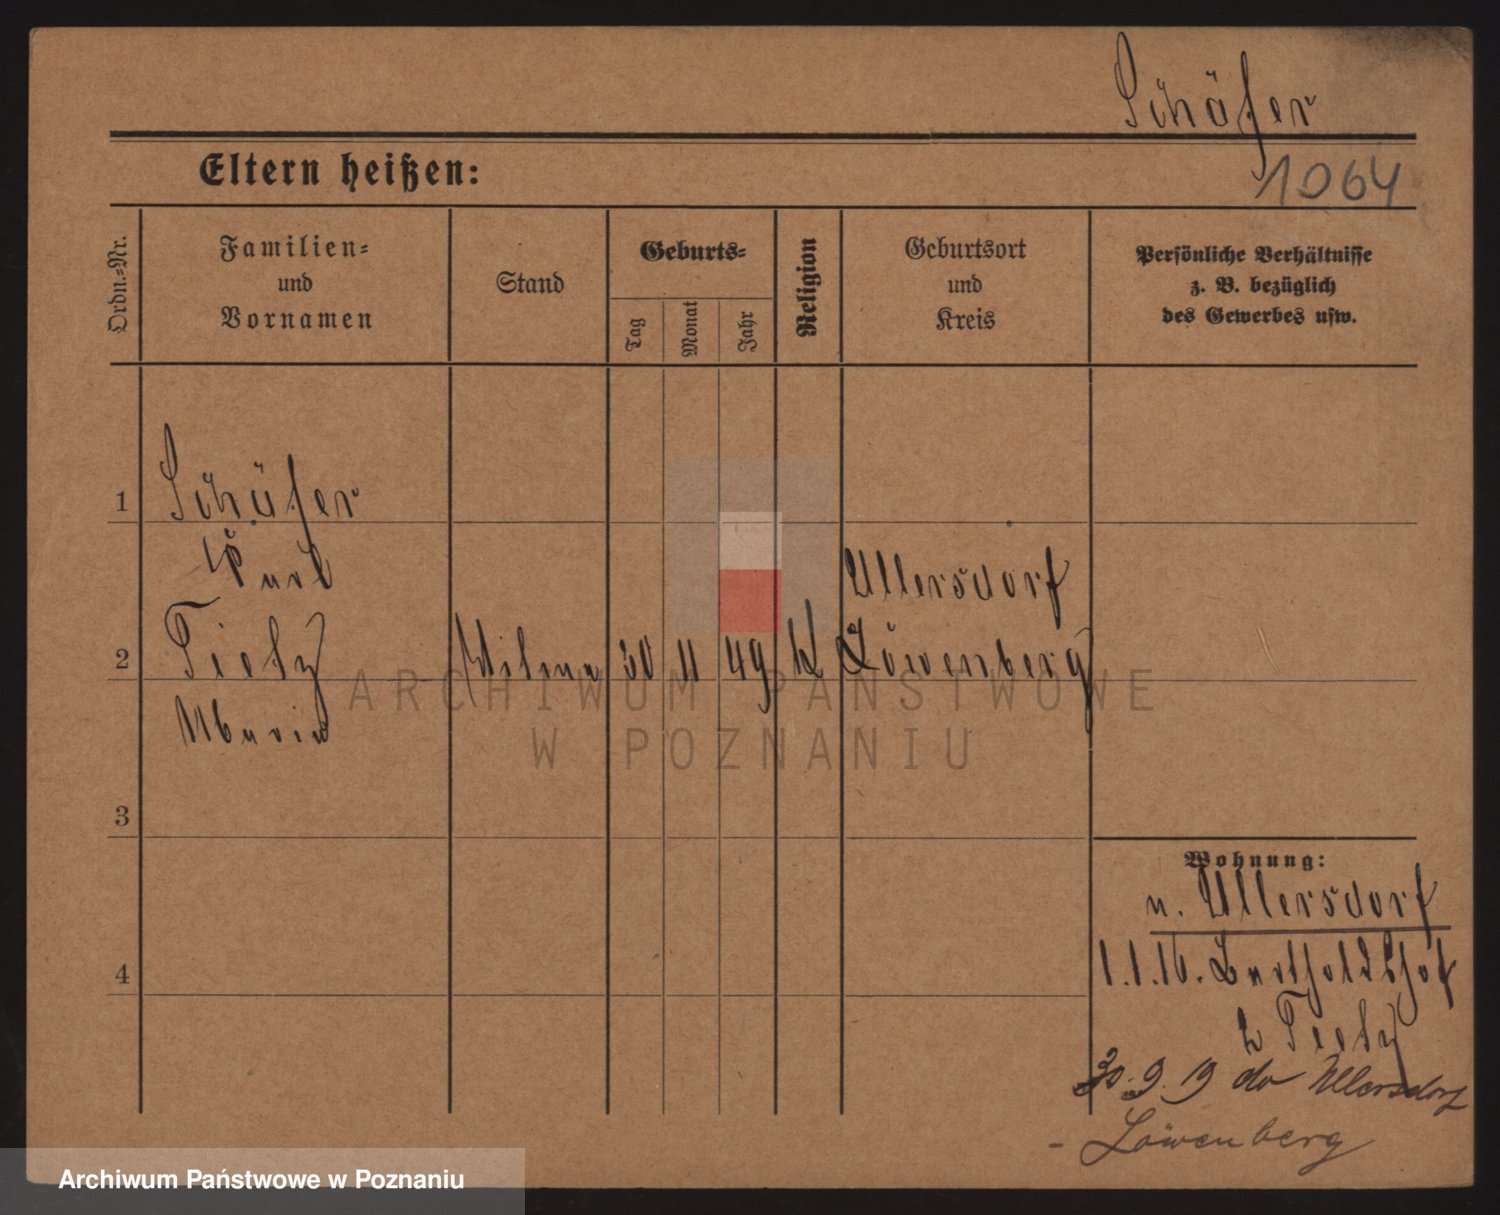 Schäfer
1064
Eltern heißen:
Ordn.-Nr.
Familien-
und
Vornamen
Stand
Geburts-
Tag
Monat
Jahr
Religion
Geburtsort
und
Kreis
Persönliche Verhältnisse
z. B. bezüglich
des Gewerbes usw.
1
Schäfer
2
Tietz
Maria
Witwe
30
11
49
K
Ullersdorf
Löwenberg
3
4
Wohnung:
n. Ullersdorf
1.1.16. Bartholdshof
b Tietz
30.9.19 do Ullersdorf
- Löwenberg
ARCHIWUM PAŃSTWOWE
W POZNANIU
Archiwum Państwowe w Poznaniu